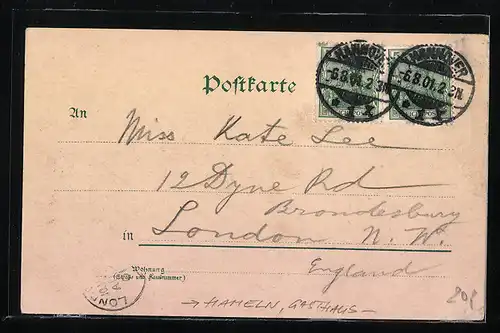 HANNOVER
-6.8.01.2-3N.
* 1 x
HANNOVER
-6.8.01.2-3N.
* 1 x
Postkarte
An
Miss Kate Lee
12 Dyne Rd
Brondesbury
in London N. W.
Wohnung
(Straße und Hausnummer)
England
LON
→ HAMELN, GASTHAUS -